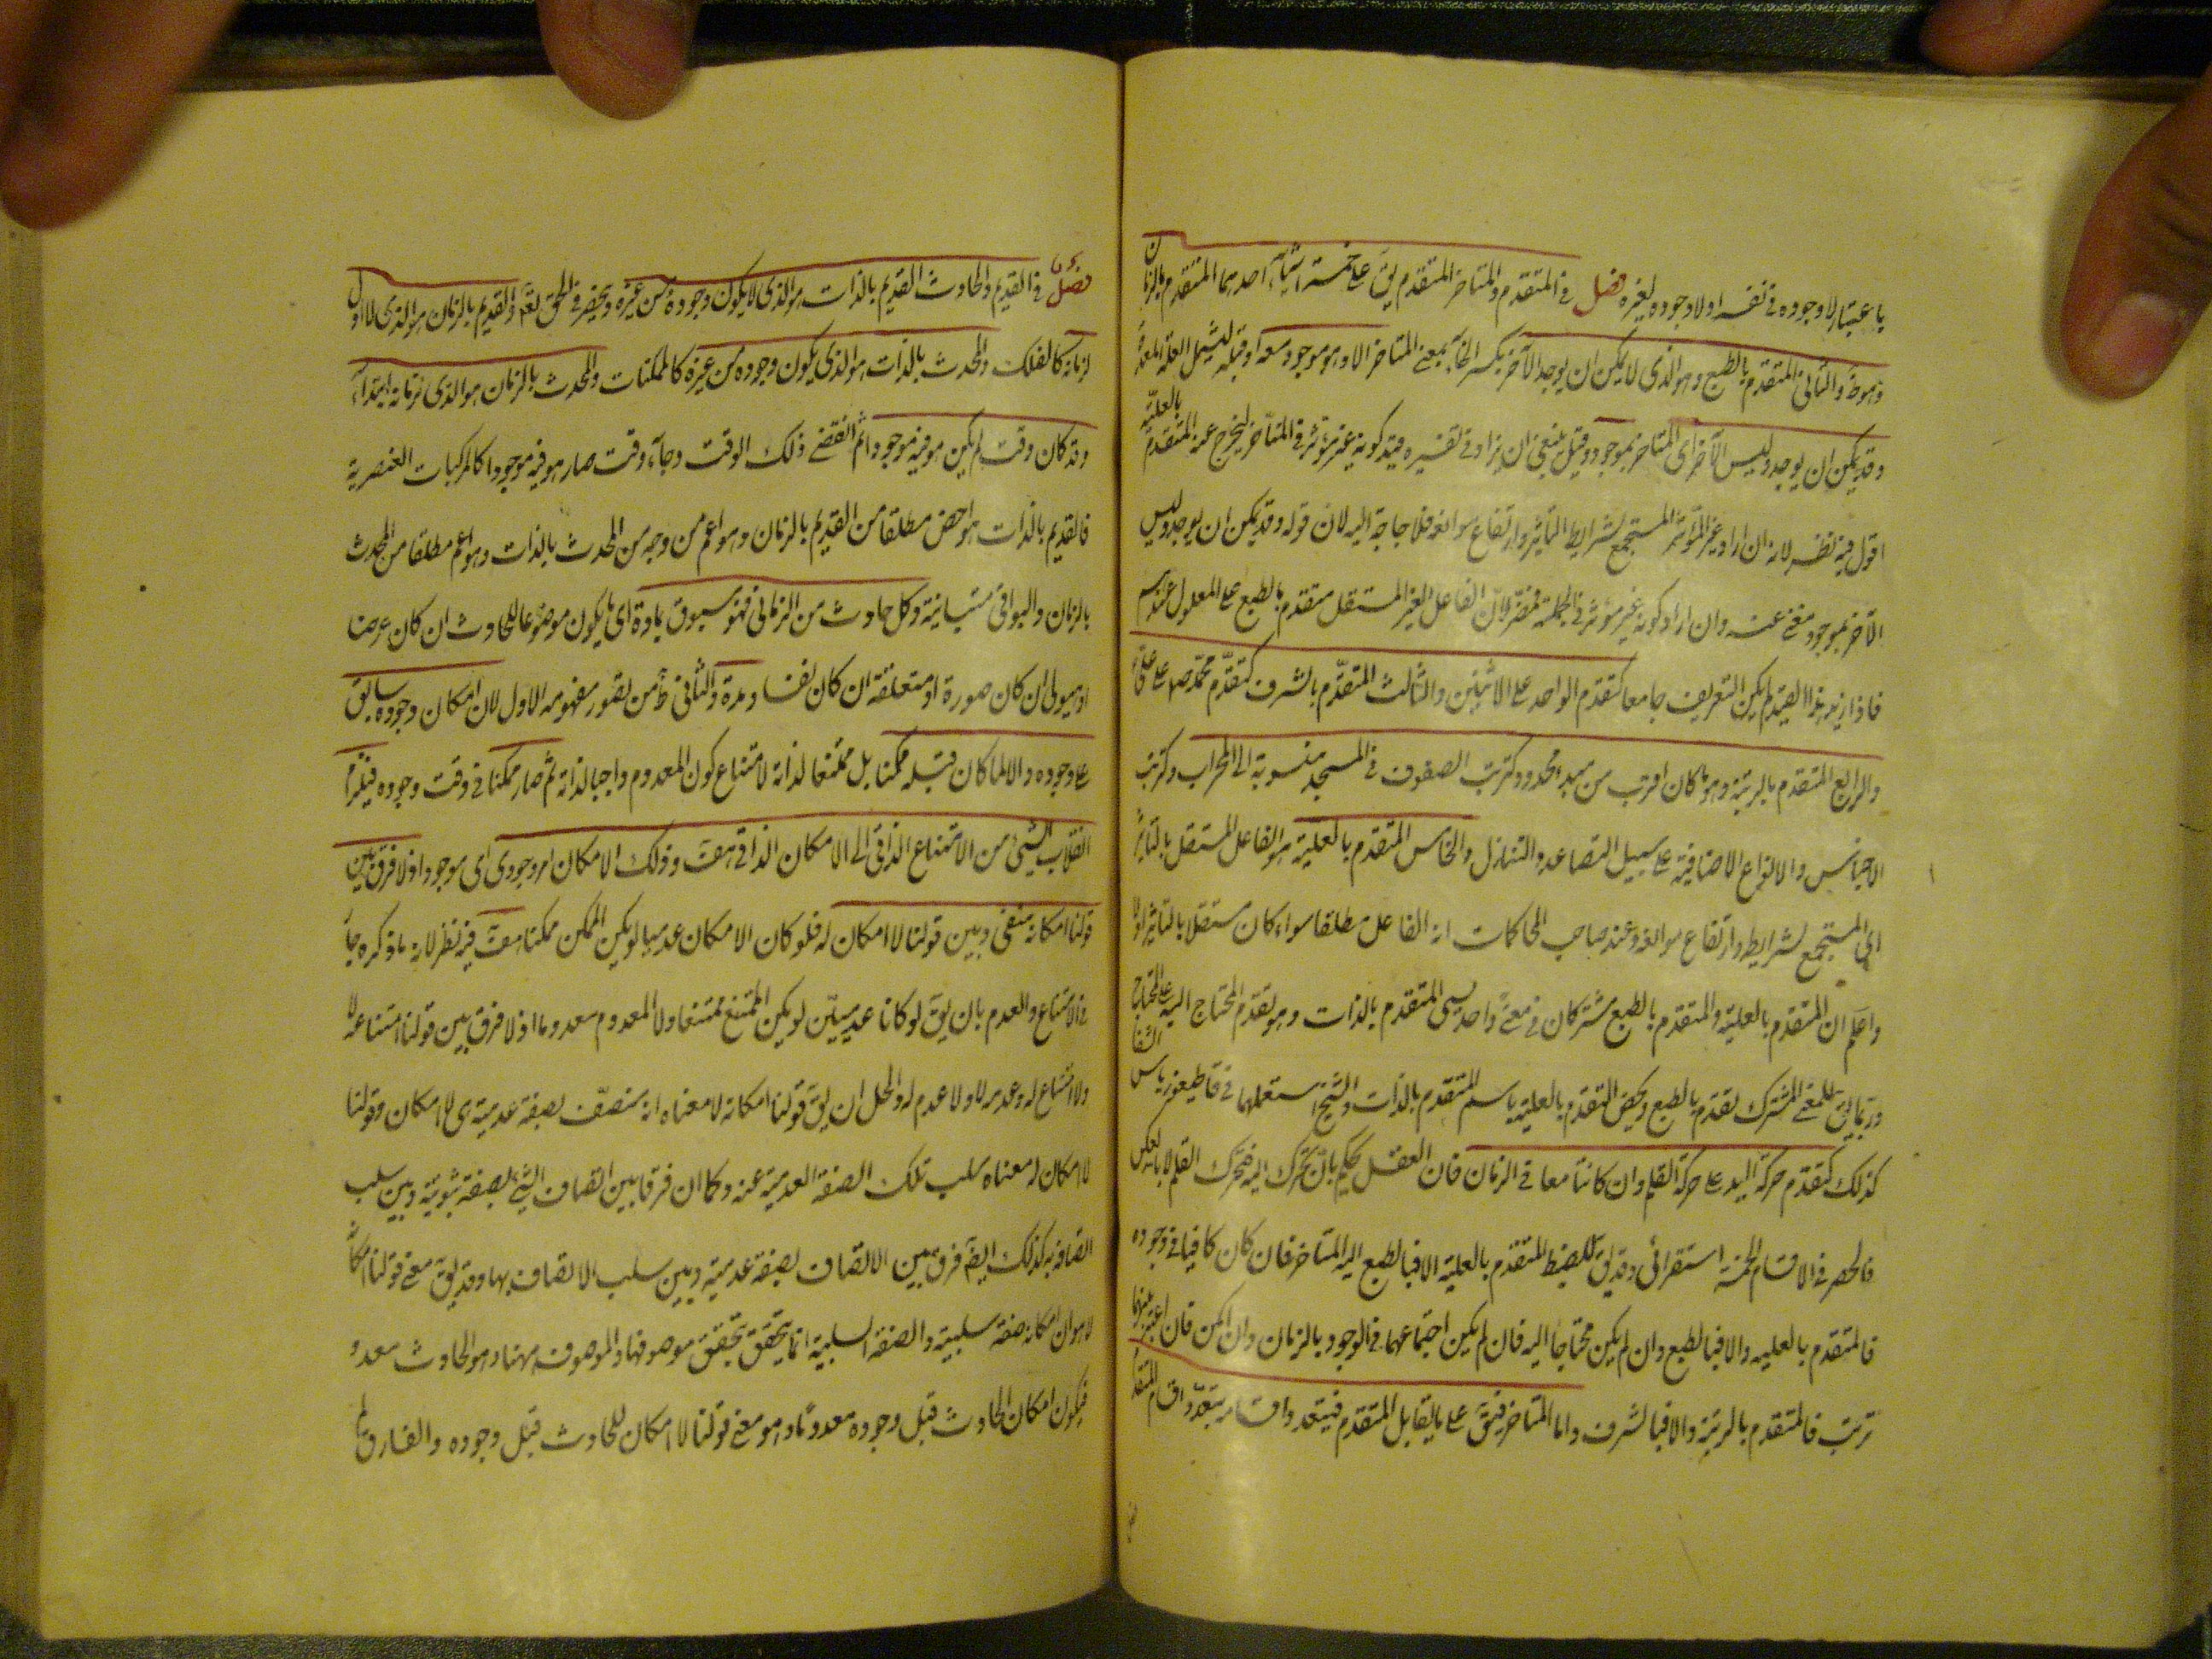 باعتبار لا وجوده في نفسه او لا وجوده لغيره فصل في المتقدم والمتاخر المتقدم يق على خمسة اشياء احدها المتقدم بالزمان
وهو ظ والثاني المتقدم بالطبع وهو الذي لا يمكن ان يوجد الآخر بكسر الخاء بمعنى المتاخر الا وهو موجود معه او قبله ليشمل العلة المعدة
وقد يمكن ان يوجد وليس الآخر اى المتاخر بموجود وقيل ينبغي ان يزاد في تفسيره قيد كونه غير مؤثر في المتاخر ليخرج عنه المتقدم بالعلية
اقول فيه نظر لانه ان اراد غير المؤثر المستجمع لشرايط التاثير وارتفاع موانعه فلا حاجة اليه لان قوله وقد يمكن ان يوجد وليس
الآخر بموجود مغن عنه وان اراد كونه غير مؤثر في الجملة فمضر لان الفاعل الغير المستقل متقدم بالطبع على المعلول عندهم
فاذا زيد هذا القيد لم يكن التعريف جامعا كتقدم الواحد على الاثنين والثالث المتقدم بالشرف كتقدم محمد صلعم على
والرابع المتقدم بالرتبة وهو ما كان اقرب من مبدء محدود كترتب الصفوف في المسجد منسوبة الى المحراب وكترتب
الاجناس والانواع الاضافية على سبيل التصاعد والتنازل والخامس المتقدم بالعلية هو الفاعل المستقل بالتاثير
اى المستجمع لشرايط وارتفاع موانعه وعند صاحب المحاكمات انه الفاعل مطلقا سواء كان مستقلا بالتاثير اولا
واعلم ان المتقدم بالعلية والمتقدم بالطبع مشتركان في معنى واحد يسمى المتقدم بالذات وهو تقدم المحتاج اليه على المحتاج
وربما يق للمعنى المشترك تقدم بالطبع ويخص التقدم بالعلية باسم المتقدم بالذات والشيخ استعملهما في قاطيغورياس الشفا
كذلك كتقدم حركة اليد على حركة القلم وان كانتا معا في الزمان فان العقل يحكم بان تحرك اليد فتحرك القلم لا بالعكس
والحصر في الاقسام الخمسة استقرائي وقد يق للضبط المتقدم بالعلية الا فبالطبع اليه المتاخر فان كان كافيا في وجوده
فالمتقدم بالعليه والا فبالطبع وان لم يكن محتاجا اليه فان لم يكن اجتماعهما في الوجود بالزمان وان امكن فان اعتبر بينهما
ترتب فالمتقدم بالرتبة والا فبالشرف واما المتاخر فيق على ما يقابل المتقدم فيتعدد اقسامه بتعدد اقسام المتقدم
فصل في القديم والحادث القديم بالذات هو الذي لا يكون وجوده من غيره وينحصر في الحق تعم والقديم بالزمان هو الذي لا اول
لزمانه كالفلك والمحدث بالذات هو الذي يكون وجوده من غيره كالممكنات والمحدث بالزمان هو الذي لزمانه ابتداء
وقد كان وقت لم يكن هو فيه موجودا ثم انقضى ذلك الوقت وجاء وقت صار هو فيه موجودا كالمركبات العنصرية
فالقديم بالذات هو اخص مطلقا من القديم بالزمان وهو اعم من وجه من المحدث بالذات وهو اعم مطلقا من المحدث
بالزمان والبواقي متباينة وكل حادث من الزماني فهو مسبوق بمادة اى ما يكون موضوعا للحادث ان كان عرضا
او هيولى ان كان صورة او متعلقة ان كان نفسا ومدة والثاني ظ من تصور مفهومه الاول لان امكان وجوده سابق
على وجوده والا لما كان قبله ممكنا بل ممتنعا لذاته لامتناع كون المعدوم واجبا لذاته ثم صار ممكنا في وقت وجوده فيلزم
انقلاب الشئ من الامتناع الذاتي الى الامكان الذاتي هف وذلك الامكان امر وجودى اى موجود اذ لا فرق بين
قولنا امكانه منفي وبين قولنا لا امكان له فلو كان الامكان عدميا لم يكن الممكن ممكنا هف فيه نظر لانه ما ذكره جار
في الامتناع والعدم بان يق لو كانا عدميين لم يكن الممتنع ممتنعا ولا المعدوم معدوما اذ لا فرق بين قولنا امتناعه لا
ولا امتناع له وعدمه لا ولا عدم له والحل ان يق قولنا امكانه لا معناه انه متصف بصفة عدمية هى الامكان وقولنا
لا امكان له معناه سلب تلك الصفة العدمية عنه وكما ان فرقا بين اتصاف الشئ بصفة ثبوتية وبين سلب
اتصافه به كذلك ايضا فرق بين الاتصاف بصفة عدمية وبين سلب الاتصاف بها وقد يق معنى قولنا امكانه
لا هو ان امكانه صفة سلبية والصفة السلبية انما يتحقق بتحقق موصوفها والموصوف ههنا وهو الحادث معدوم
فيكون امكان الحادث قبل وجوده معدوما وهو معنى قولنا لا امكان للحادث قبل وجوده والفارق